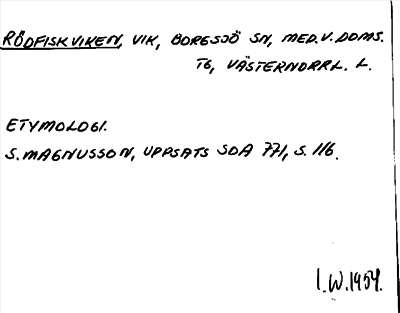 RÖDFISKVIKEN, VIK, BORGSJÖ SN, MED.V.DOMS.
TG, VÄSTERNORRL. L.
ETYMOLOGI.
S. MAGNUSSON, UPPSATS SOA 771, S. 116.
I.W.1954.